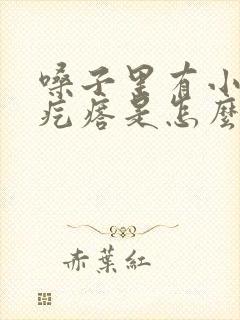 嗓子里有小
疙瘩是怎麽
赤葉紅